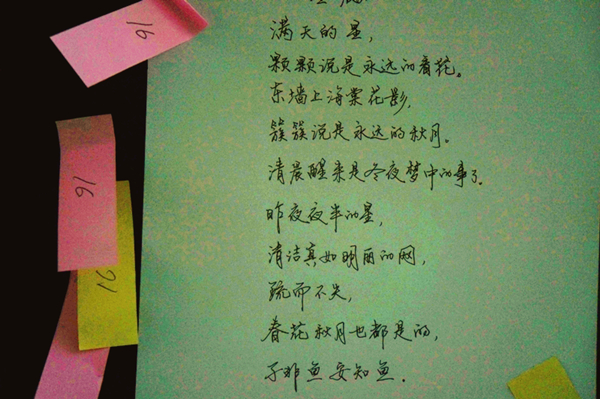 满天的星，
颗颗说是永远的春花。
东墙上海棠花影，
簇簇说是永远的秋月。
清晨醒来是冬夜梦中的事了。
昨夜夜半的星，
清洁真如明丽的网，
疏而不失，
春花秋月也都是的，
子非鱼安知鱼．
16
16
16